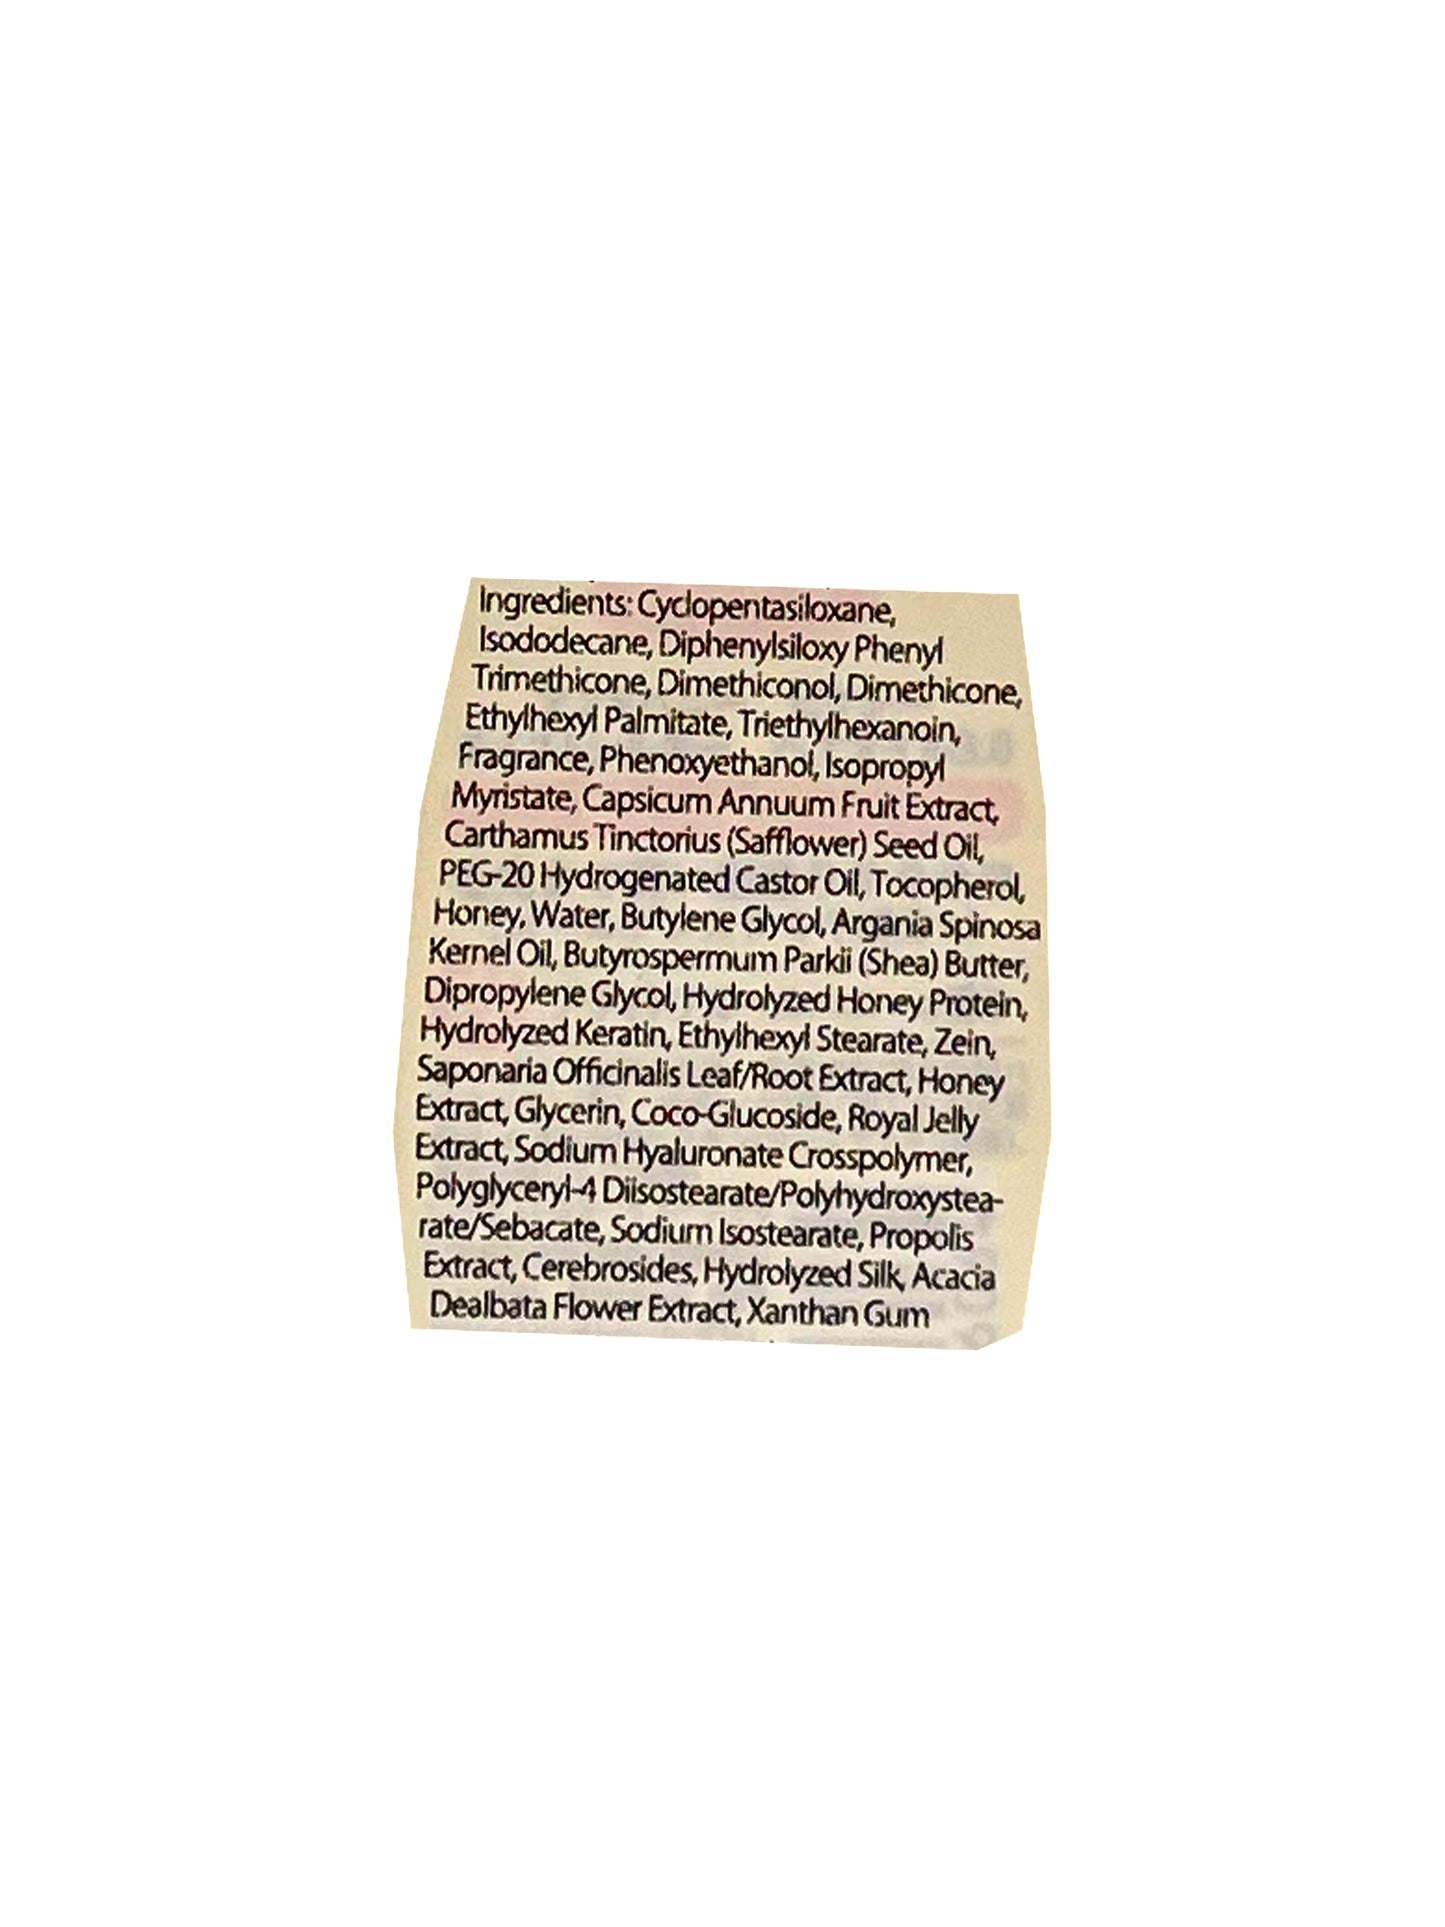 Ingredients: Cyclopentasiloxane,
Isododecane, Diphenylsiloxy Phenyl
Trimethicone, Dimethiconol, Dimethicone,
Ethylhexyl Palmitate, Triethylhexanoin,
Fragrance, Phenoxyethanol, Isopropyl
Myristate, Capsicum Annuum Fruit Extract,
Carthamus Tinctorius (Safflower) Seed Oil,
PEG-20 Hydrogenated Castor Oil, Tocopherol,
Honey, Water, Butylene Glycol, Argania Spinosa
Kernel Oil, Butyrospermum Parkii (Shea) Butter,
Dipropylene Glycol, Hydrolyzed Honey Protein,
Hydrolyzed Keratin, Ethylhexyl Stearate, Zein,
Saponaria Officinalis Leaf/Root Extract, Honey
Extract, Glycerin, Coco-Glucoside, Royal Jelly
Extract, Sodium Hyaluronate Crosspolymer,
Polyglyceryl-4 Diisostearate/Polyhydroxystea-
rate/Sebacate, Sodium Isostearate, Propolis
Extract, Cerebrosides, Hydrolyzed Silk, Acacia
Dealbata Flower Extract, Xanthan Gum